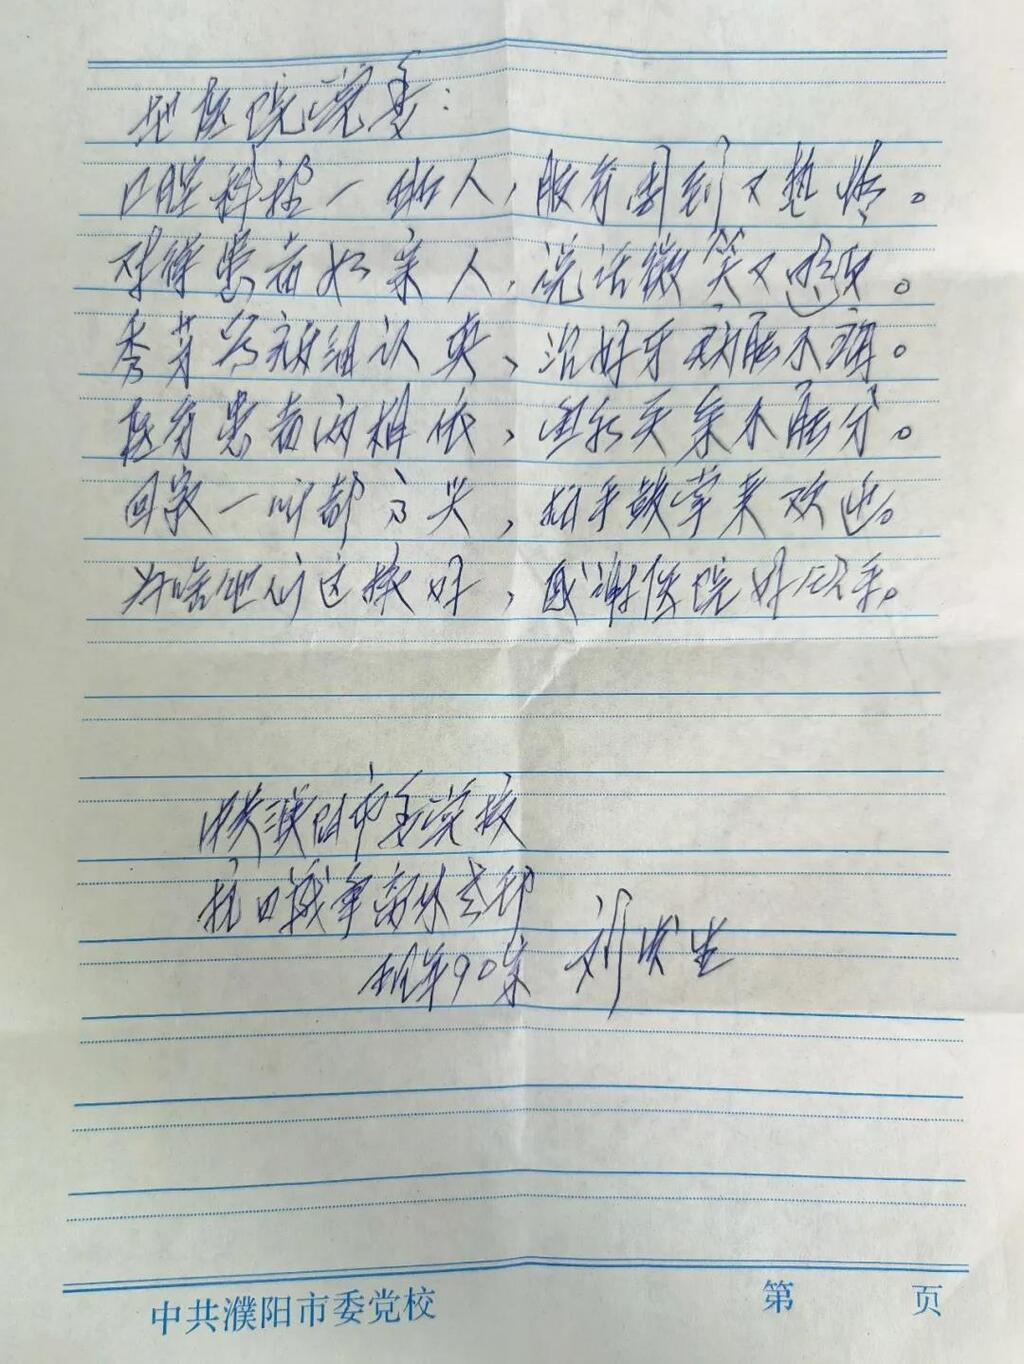 地医院院委：
口腔科里一班人，服务周到又热情。
对待患者如亲人，说话微笑又
秀芳认真，治好牙病能不疼。
医务患者两相依，关系不能分。
回家一叫都高兴，拍手鼓掌来欢迎。
为啥他们这样好，感谢医院好领导。
中共濮阳市委党校
抗日战争离休老干部
现年90岁 刘生
中共濮阳市委党校 第 页